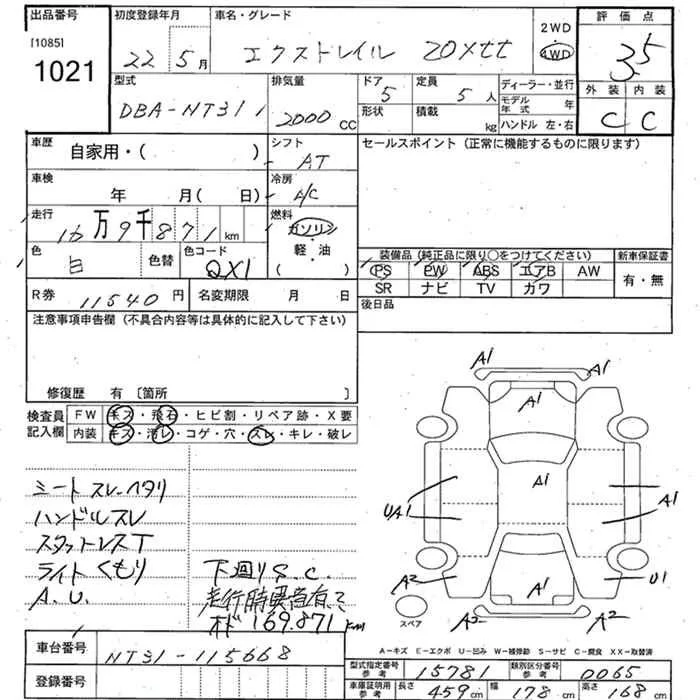 出品番号
[1085]
1021
初度登録年月
22 5月
車名・グレード
エクストレイル 20Xtt
2WD
4WD
評価点
3.5
外装 内装
C C
型式
DBA-NT31
排気量
2000 CC
ドア
5
形状
定員
5 人
積載
kg
ディーラー・並行
モデル年式 年
ハンドル 左・右
車歴
自家用・( )
シフト
AT
セールスポイント(正常に機能するものに限ります)
車検
年 月( 日)
冷房
A/C
走行
16万9千871km
燃料
ガソリン
軽・油
( )
色
白
色替
色コード
QX1
装備品(純正品に限り○をつけてください)
PS PW ABS エアB AW
SR ナビ TV カワ
新車保証書
有・無
R券
11540円
名変期限 月 日
後日品
注意事項申告欄(不具合内容等は具体的に記入して下さい)
修復歴 有〔箇所 〕
検査員記入欄
FW キズ・飛石・ヒビ割・リペア跡・X要
内装 キズ・汚レ・コゲ・穴・スレ・キレ・破レ
シートスレ・ヘタリ
ハンドルスレ
スタットレスT
ライトくもり
A.U.
下廻りS.C.
走行時異音有
169.871km
A1
A1
A1
A1
UA1
A1
A2
A1
U1
A2
A2
スペア
A-キズ E-エクボ U-凹み W-補修跡 S-サビ C-腐食 XX-取替済
車台番号
NT31-115668
登録番号
型式指定番号 参考
15781
類別区分番号 参考
0065
車庫証明用 参考
長さ 459cm
幅 178cm
高さ 168cm